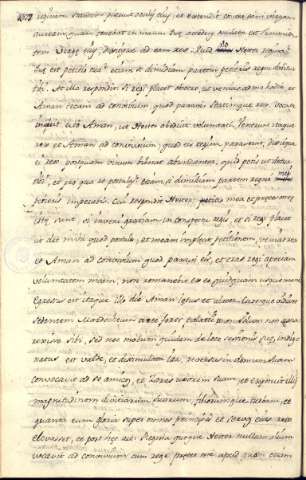 reginam stantem placuit oculis eius, et extendit contra eam virgam
auream quam tenebat in manu. Quae accedens osculata est summitatem
virgae eius, dixitque ad eam rex: Quid vis Hester
tua est petitio tua? etiam si dimidiam partem regni
At illa respondit: si regi placet obsecro ut venias ad me hodie, et
Aman tecum ad convivium quod paravi. Statimque rex vocate
inquit cito Aman, ut Hester obediat voluntati. Venerunt itaque
rex et Aman ad convivium, quod eis regina paraverat, dixitque
ei rex postquam vinum biberat abundanter, quid petis ut detur
tibi, et pro qua re postulas? etiam si dimidiam partem regni mei
petieris impetrabis. Cui respondit Hester: petitio mea et preces
sunt si inveni gratiam in conspectu regis, et si regi placet
ut det mihi quod postulo, et meam impleat petitionem, veniat rex
et Aman ad convivium quod paravi eis, et cras regi aperiam
voluntatem meam,
Egressus est itaque illo die Aman laetus et alacer, cumque vidisset
sedentem Mardochaeum ante fores palatii, non solum non
sibi, sed nec motum quidem de loco sessionis suae,
natus est valde, et dissimulata ira, reversus in domum suam
convocavit ad se amicos, et Zares uxorem suam, et exposuit illis
magnitudinem divitiarum suarum, filiorumque turbam, et
quanta eum gloria super omnes principes et servos suos rex
elevasset, et post haec ait: Regina quoque Hester nullum alium
vocavit ad convivium cum rege praeter me, apud quam etiam